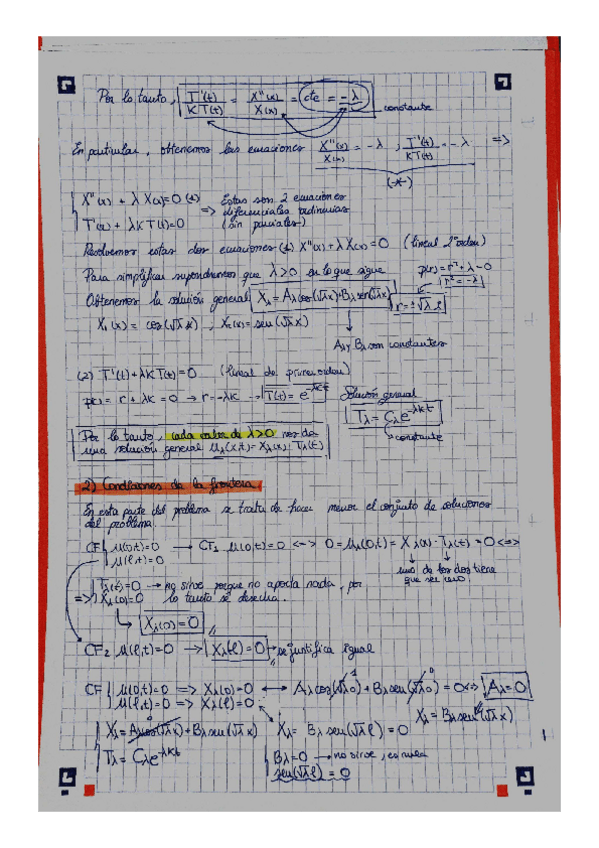 Por lo tanto, T'(t)/KT(t) = X''(x)/X(x) = cte = -λ constante
En particular, obtenemos las ecuaciones X''(x)/X(x) = -λ ; T'(t)/KT(t) = -λ =>
(*)
X''(x) + λ X(x) = 0 (1) Estas son 2 ecuaciones
=> diferenciales ordinarias
T'(t) + λK T(t) = 0 (sin parciales)
Resolvemos estas dos ecuaciones (1) X''(x) + λ X(x) = 0 (lineal 2º orden)
Para simplificar supondremos que λ>0 en lo que sigue p(r) = r² + λ = 0
r² = -λ
Obtenemos la solución general Xλ = Aλ cos(√λ x) + Bλ sen(√λ x) r = ±√λ i
X₁(x) = cos(√λ x) ; X₂(x) = sen(√λ x)
Aλ y Bλ son constantes
(2) T'(t) + λK T(t) = 0 (lineal de primer orden)
p(r) = r + λK = 0 → r = -λK → T(t) = e^-λKt Solución general
Tλ = Cλ e^-λKt
constante
Por lo tanto, cada valor de λ>0 nos da
una solución general uλ(x,t) = Xλ(x) · Tλ(t)
2) Condiciones de la frontera
En esta parte del problema se trata de hacer menor el conjunto de soluciones
del problema.
CF u(0,t)=0 → CF₁ u(0,t)=0 <=> 0 = uλ(0,t) = Xλ(0) · Tλ(t) = 0 <=>
u(ℓ,t)=0
uno de los dos tiene
que ser cero.
Tλ(t)=0 → no sirve porque no aporta nada, por
=> Xλ(0)=0 lo tanto se desecha.
Xλ(0)=0
CF₂ u(ℓ,t)=0 → Xλ(ℓ)=0 → se justifica igual
CF u(0,t)=0 => Xλ(0)=0 ↔ Aλ cos(√λ 0) + Bλ sen(√λ 0) = 0 <=> Aλ=0
u(ℓ,t)=0 => Xλ(ℓ)=0
Xλ = Bλ sen(√λ x)
Xλ = Aλ cos(√λ x) + Bλ sen(√λ x) Xλ = Bλ sen(√λ ℓ) = 0
Tλ = Cλ e^-λKt Bλ=0 → no sirve, es nula
sen(√λ ℓ) = 0